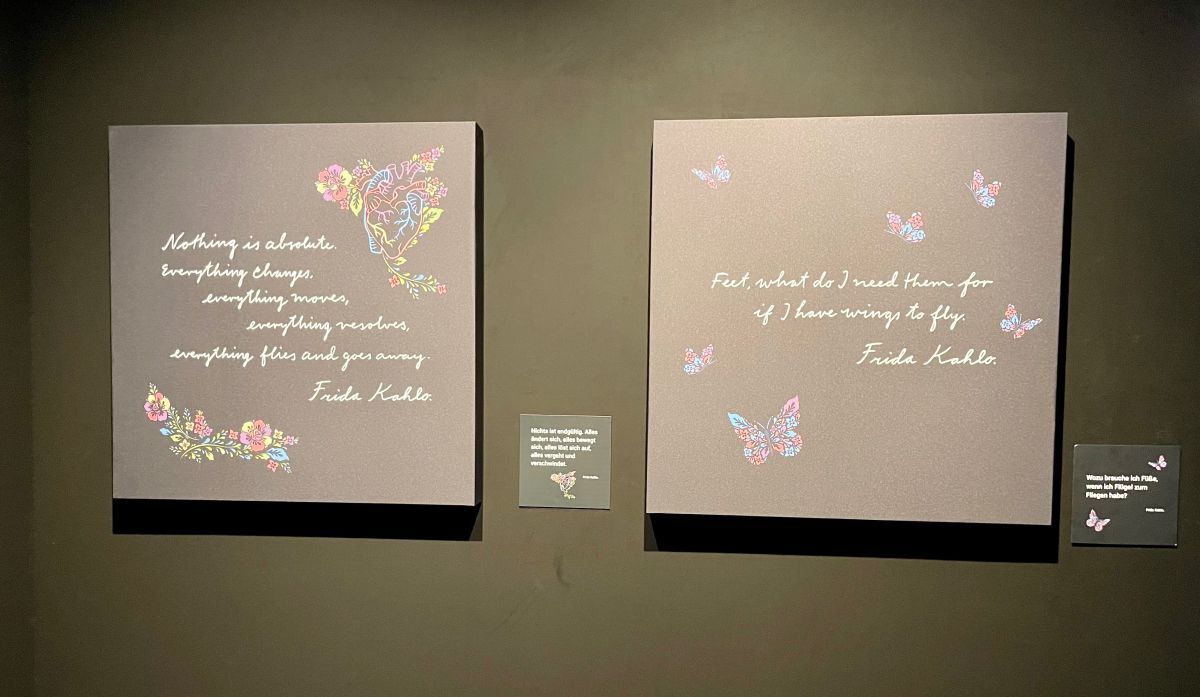 Nothing is absolute.
Everything changes,
everything moves,
everything revolves,
everything flies and goes away.
Frida Kahlo.
Nichts ist endgültig. Alles
ändert sich, alles bewegt
sich, alles löst sich auf,
alles vergeht und
verschwindet.
Frida Kahlo.
Feet, what do I need them for
if I have wings to fly.
Frida Kahlo.
Wozu brauche ich Füße,
wenn ich Flügel zum
Fliegen habe?
Frida Kahlo.